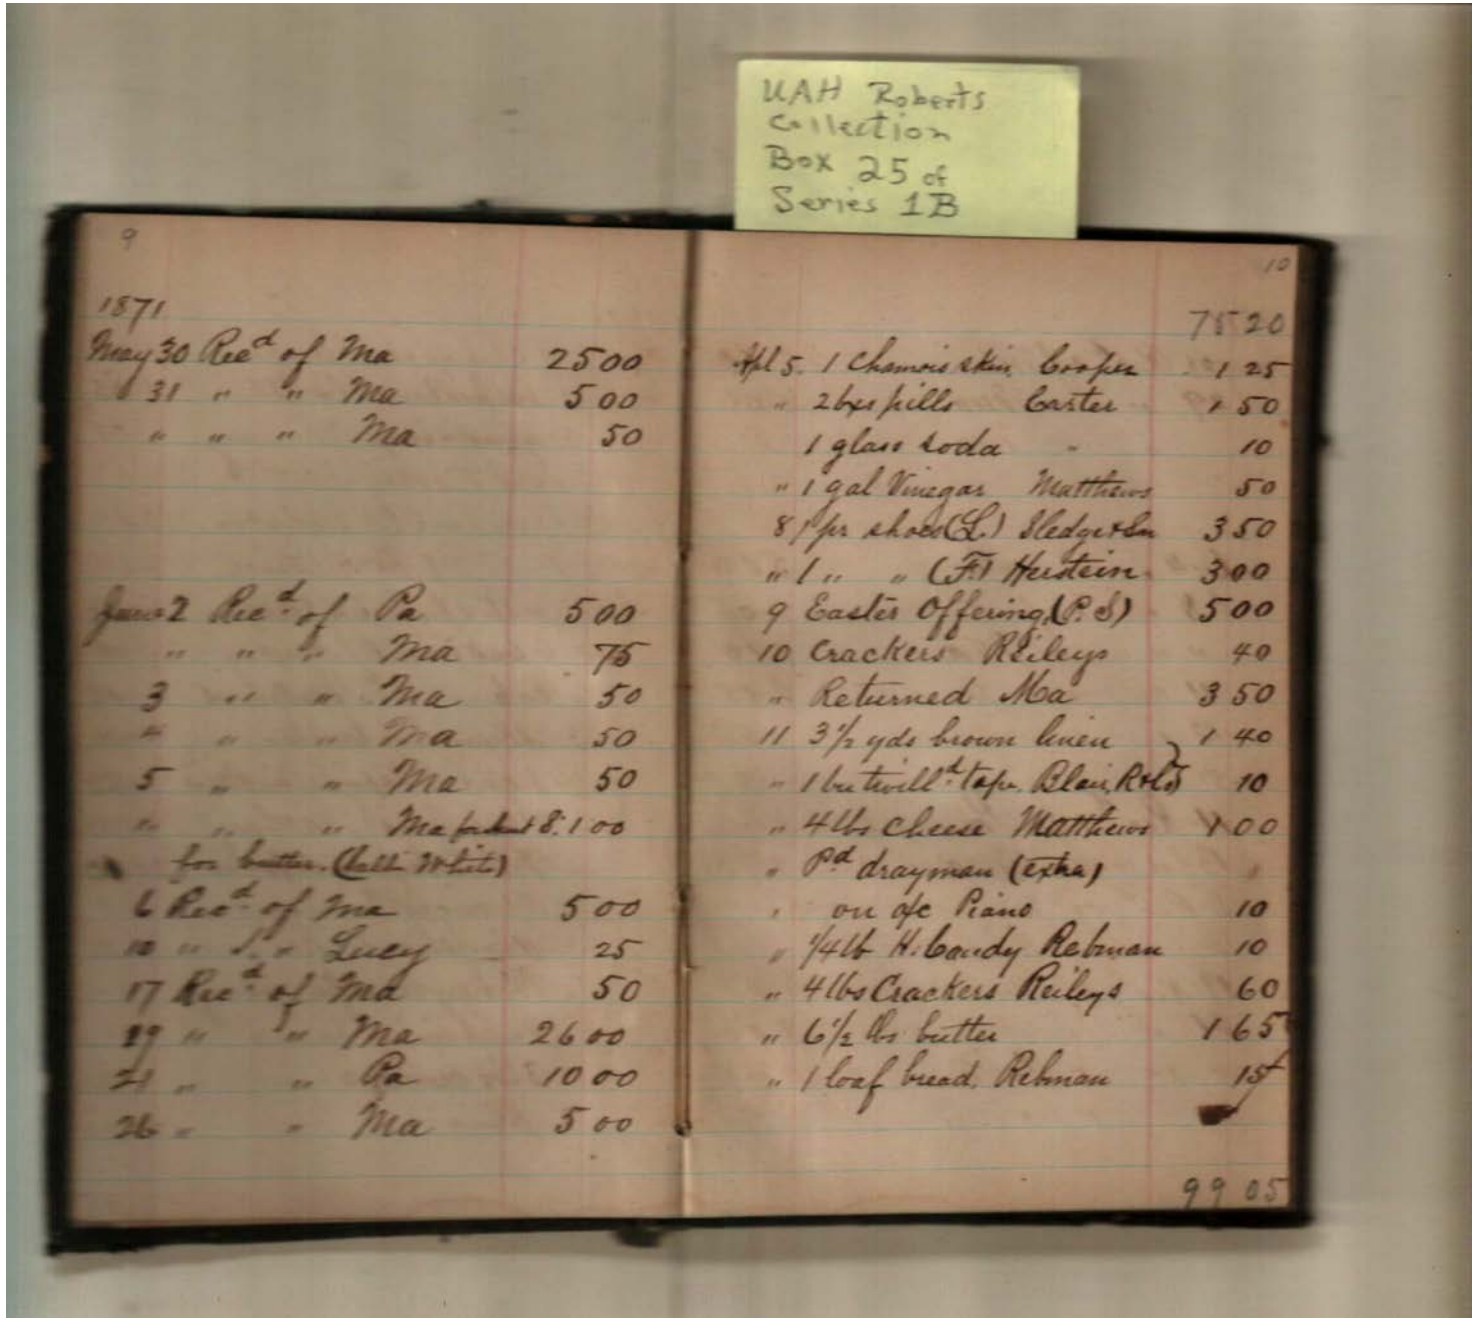 UAH Roberts
Collection
Box 25 of
Series 1B
9
1871
May 30 Recd of Ma 25 00
31 " " Ma 5 00
" " " Ma 50
June 2 Recd of Pa 5 00
" " " Ma 75
3 " " Ma 50
" " " Ma 50
5 " " Ma 50
" " " Ma 1 00
for butter. (White)
6 Recd of Ma 5 00
10 " " Lucy 25
17 Recd of Ma 50
19 " " Ma 26 00
21 " " Pa 10 00
26 " " Ma 5 00
10
75 20
Apl 5. 1 Chamois skin. Cooper 1 25
" 2 bxs pills Carter 1 50
1 glass soda " 10
" 1 gal Vinegar Matthews 50
8 1 pr shoes (L.) Sledge & 3 50
" 1 " " (F.) Herstein 3 00
9 Easter Offering, (P.S) 5 00
10 Crackers Reileys 40
" Returned Ma 3 50
11 3½ yds brown linen 1 40
" 1 twilld tape. Blair, R & Co 10
" 4 lbs Cheese Matthews 1 00
" Pd drayman (extra)
" on a/c Piano 10
" ¼ lb H. Candy Rebman 10
" 4 lbs Crackers Reileys 60
" 6½ lbs butter 1 65
" 1 loaf bread. Rebman 15
99 05